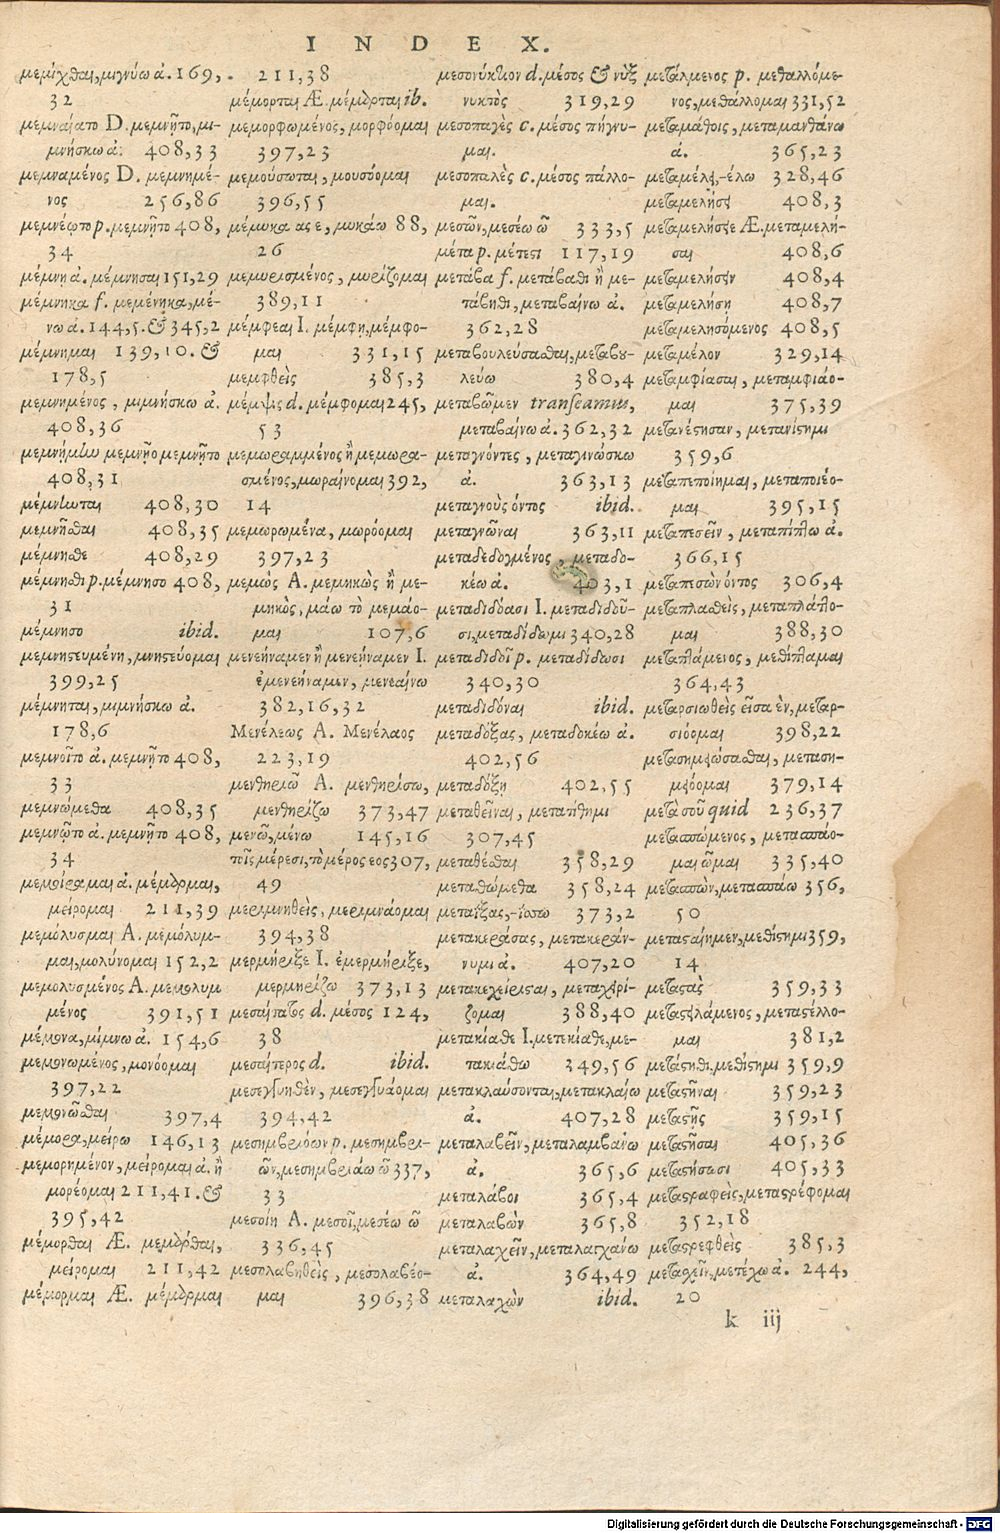 INDEX.
μεμίχθαι, μιγνύω ἀ. 169,
32
μεμναίατο D. μεμνῇτο, μι-
μνήσκω ἀ. 408,33
μεμναμένος D. μεμνημέ-
νος 256,86
μεμνέῳτο p. μεμνῇτο 408,
34
μέμνη ἀ. μέμνησαι 151,29
μέμνηκα f. μεμένηκα, μέ-
νω ἀ. 144,5. & 345,2
μέμνημαι 139,10. &
178,5
μεμνημένος, μιμνήσκω ἀ.
408,36
μεμνῄμην μεμνῇο μεμνῇτο
408,31
μέμνηνται 408,30
μεμνῆσθαι 408,35
μέμνησθε 408,29
μέμνησθι p. μέμνησο 408,
31
μέμνησο ibid.
μεμνηστευμένη, μνηστεύομαι
399,25
μέμνηται, μιμνήσκω ἀ.
178,6
μεμνοῖτο ἀ. μεμνῇτο 408,
33
μεμνώμεθα 408,35
μεμνῷτο ἀ. μεμνῇτο 408,
34
μεμόιραμαι ἀ. μέμαρμαι,
μείρομαι 211,39
μεμόλυσμαι A. μεμόλυμ-
μαι, μολύνομαι 152,2
μεμολυσμένος A. μεμολυμ
μένος 391,51
μέμονα, μίμνω ἀ. 154,6
μεμονωμένος, μονόομαι
397,22
μεμονῶσθαι 397,4
μέμορα, μείρω 146,13
μεμορημένον, μείρομαι ἀ. ἢ
μορέομαι 211,41. &
395,42
μέμορθαι Æ. μεμάρθαι,
μείρομαι 211,42
μέμορμαι Æ. μέμαρμαι
211,38
μέμορται Æ. μέμαρται ib.
μεμορφωμένος, μορφόομαι
397,23
μεμούσωται, μουσόομαι
396,55
μέμυκα ας ε, μυκάω 88,
26
μεμυρισμένος, μυρίζομαι
389,11
μέμφεαι I. μέμφῃ, μέμφο-
μαι 331,15
μεμφθεὶς 385,3
μέμψις d. μέμφομαι 245,
53
μεμωραμμένος ἢ μεμωρα-
σμένος, μωραίνομαι 392,
14
μεμωρωμένα, μωρόομαι
397,23
μεμὼς A. μεμηκὼς ἢ με-
μηκὸς, μάω τὸ μεμάο-
μαι 107,6
μενεήναμεν ἢ μενεήναμεν I.
ἐμενεήναμεν, μενεαίνω
382,16,32
Μενέλεως A. Μενέλαος
223,19
μενθηριῶ A. μενθηρίσω,
μενθηρίζω 373,47
μενῶ, μένω 145,16
τοῖς μέρεσι, τὸ μέρος εος 307,
49
μεριμνηθεὶς, μεριμνάομαι
394,38
μερμήριξε I. ἐμερμήριξε,
μερμηρίζω 373,13
μεσαίτατος d. μέσος 124,
38
μεσαίτερος d. ibid.
μεσεγγυηθὲν, μεσεγγυάομαι
394,42
μεσημβριόων p. μεσημβρι-
ῶν, μεσημβριάω ῶ 337,
33
μεσοίη A. μεσοῖ, μεσέω ῶ
336,45
μεσολαβηθεὶς, μεσολαβέο-
μαι 396,38
μεσονύκτιον d. μέσος & νὺξ
νυκτὸς 319,29
μεσοπαγὲς c. μέσος πήγνυ-
μαι.
μεσοπαλὲς c. μέσος πάλλο-
μαι.
μεσῶν, μεσέω ῶ 333,5
μέτα p. μέτεστι 117,19
μετάβα f. μετάβαθι ἢ με-
τάβηθι, μεταβαίνω ἀ.
362,28
μεταβουλεύσασθαι, μεταβου-
λεύω 380,4
μεταβῶμεν transeamus,
μεταβαίνω ἀ. 362,32
μεταγνόντες, μεταγινώσκω
ἀ. 363,13
μεταγνοὺς όντος ibid.
μεταγνῶναι 363,11
μεταδεδογμένος, μεταδο-
κέω ἀ. 403,1
μεταδιδόασι I. μεταδιδοῦ-
σι, μεταδίδωμι 340,28
μεταδιδοῖ p. μεταδίδωσι
340,30
μεταδιδόναι ibid.
μεταδόξας, μεταδοκέω ἀ.
402,56
μεταδόξῃ 402,55
μεταθεῖναι, μετατίθημι
307,45
μεταθέσθαι 358,29
μεταθώμεθα 358,24
μεταΐξας, -ίσσω 373,2
μετακεράσας, μετακεράν-
νυμι ἀ. 407,20
μετακεχείρισται, μεταχειρί-
ζομαι 388,40
μετακίαθε I. μετεκίαθε, με-
τακιάθω 349,56
μετακλαύσονται, μετακλαίω
ἀ. 407,28
μεταλαβεῖν, μεταλαμβάνω
ἀ. 365,6
μεταλάβοι 365,4
μεταλαβὼν 365,8
μεταλαχεῖν, μεταλαγχάνω
ἀ. 364,49
μεταλαχὼν ibid.
μετάλμενος p. μεθαλλόμε-
νος, μεθάλλομαι 331,52
μεταμάθοις, μεταμανθάνω
ἀ. 365,23
μεταμέλει, -έλω 328,46
μεταμελήσει 408,3
μεταμελήσειε Æ. μεταμελή-
σαι 408,6
μεταμελήσειν 408,4
μεταμελήσῃ 408,7
μεταμελησόμενος 408,5
μεταμέλον 329,14
μεταμφίασαι, μεταμφιάο-
μαι 375,39
μετανέστησαν, μετανίστημι
359,6
μεταπεποίημαι, μεταποιέο-
μαι 395,15
μεταπεσεῖν, μεταπίπτω ἀ.
366,15
μεταπεσὼν όντος 306,4
μεταπλασθεὶς, μεταπλάττο-
μαι 388,30
μεταπτάμενος, μεθίπταμαι
364,43
μεταρσιωθεὶς εῖσα ὲν, μεταρ-
σιόομαι 398,22
μετασημῄωσασθαι, μεταση-
μῃόομαι 379,14
μετὰ σοῦ quid 236,37
μετασπώμενος, μετασπάο-
μαι ῶμαι 335,40
μετασπῶν, μετασπάω 356,
50
μετασταίημεν, μεθίστημι 359,
14
μεταστὰς 359,33
μεταστειλάμενος, μεταστέλλο-
μαι 381,2
μετάστηθι, μεθίστημι 359,9
μεταστῆναι 359,23
μεταστῇς 359,15
μεταστῆσαι 405,36
μεταστήσωσι 405,33
μεταστραφεὶς, μεταστρέφομαι
352,18
μεταστρεφθεὶς 385,3
μετασχεῖν, μετέχω ἀ. 244,
20
k iij
Digitalisierung gefördert durch die Deutsche Forschungsgemeinschaft - DFG